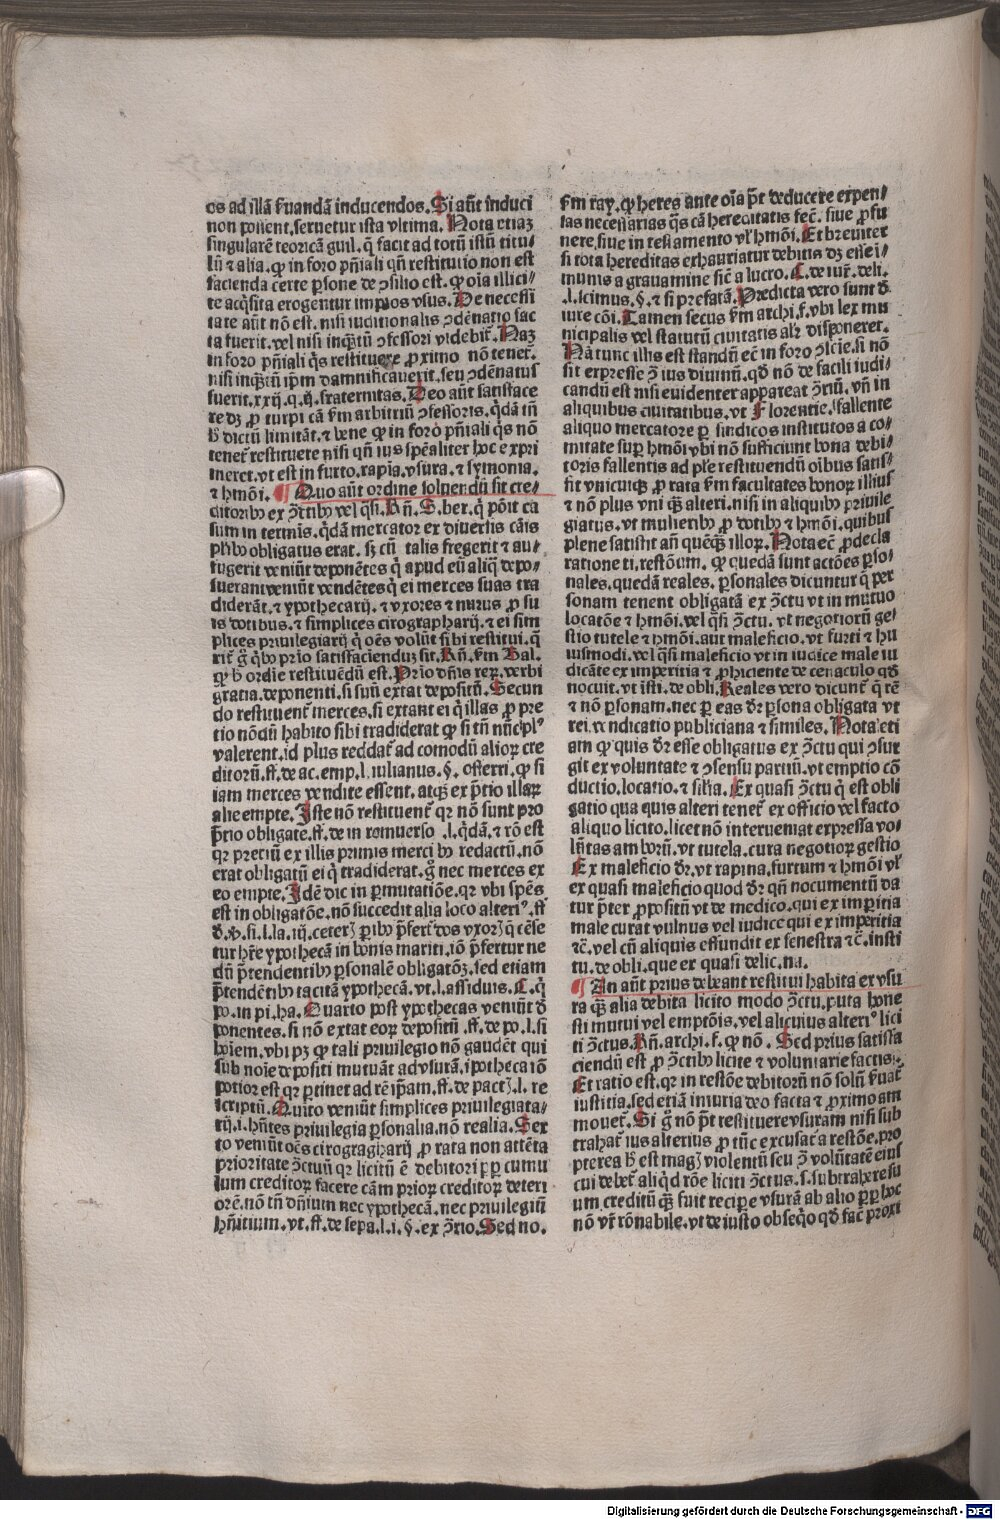 os ad illã ẜuandã inducendos. Si aũt induci
non possent, seruetur ista vltima. Nota etiaʒ
singularẽ teoricã guil. q̃ facit ad totũ istũ titu⸗
lũ ⁊ alia. ꝙ in foro pñiali qñ restitutio non est
facienda certe ꝑsone de ɔsilio est. ꝙ oĩa illici⸗
te acq̃sita erogentur in pios vsus. De necessi
tate aũt nõ est. nisi iuditionalis ɔdẽnatio fac
ta fuerit. vel nisi inq̃ʒtũ ɔfessori videbit̃. Naʒ
in foro pñiali q̃s restituere ꝓximo nõ tenet̃.
nisi inq̃ʒtũ ip̃m damnificauerit. seu ɔdẽnatus
fuerit. xxij. q. ij. fraternitas. Deo aũt satisface
re dʒ ꝓ turpi cã ẜm arbitriũ ɔfessoris. q̃dã tñ
ħ dictũ limitãt. ⁊ bene ꝙ in foro pñiali q̃s nõ
tenet̃ restituere nisi qñ ius spẽaliter hoc expri
meret. vt est in furto. rapĩa. vsura. ⁊ symonia.
⁊ hmõi. ¶ Quo aũt ordine soluendũ sit cre⸗
ditoribꝰ ex ɔ̃tibꝰ vel q̃si. Rñ. S. ber. q̃ põit ca
sum in termĩs. q̃dã mercator ex diuersis cãis
pl̃ribꝰ obligatus erat. sʒ cũ talis fregerit ⁊ au⸗
fugerit veniũt deponẽtes q̃ apud eũ aliq̃ depo⸗
suerant veniũt vendẽtes q̃ ei merces suas tra
diderãt. ⁊ ypothecarij. ⁊ vxores ⁊ nurus ꝓ su
is dotibus. ⁊ simplices cirographarij. ⁊ ei sim
plices priuilegiarij q̃ oẽs volũt sibi restitui. q̃
rit̃ g̃ q̃bꝰ prĩo satisfacienduʒ sit. Rñ. ẜm Bal.
ꝙ ħ ordĩe restituẽdũ est. Prĩo dñis reꝝ. verbi
gratia. deponenti. si suũ extat depositũ. Secun
do restituent̃ merces. si extant ei q̃ illas ꝓ pre
tio nõdũ habito sibi tradiderat ꝙ si tñ nũc plꝰ
valerent. id plus reddat̃ ad comodũ alioꝝ cre
ditorũ. ff. de ac. emp. l. iulianus. §. offerri. ꝙ si
iam merces vendite essent. atqʒ ex p̃tio illaꝝ
alie empte. Iste nõ restituent̃ qꝛ nõ sunt pro
p̃tio obligate. ff. de in rem uerso .l. q̃dã. ⁊ rõ est
qꝛ preciũ ex illis primis mercibꝰ redactũ. nõ
erat obligatũ ei q̃ tradiderat. g̃ nec merces ex
eo empte. Idẽ dic in ꝑmutatiõe. qꝛ vbi spẽs
est in obligatõe. nõ succedit alia loco alteriꝰ. ff
đ. v̾. si. l. la. iij. ceterʒ ꝑibꝰ p̃fert̃ dos vxorʒ q̃ cẽse
tur hr̃e ypothecã in bonis mariti. iõ p̃fertur ne
dũ p̃tendentibꝰ ꝑsonalẽ obligatõʒ. sed etiam
p̃tendẽtibꝰ tacitã ypothecã. vt. l. assiduis. C. q̃
po. in pi. ha. Quarto post ypothecas veniũt đ
ponentes. si nõ extat eoꝝ depositũ .ff. de po. l. si
hoĩem. vbi pʒ ꝙ tali priuilegio nõ gaudẽt qui
sub noĩe depositi mutuãt ad vsurã. ipotheca iõ
potior est qꝛ ꝑtinet ad rẽ ip̃am. ff. de pactʒ. l. re
scriptũ. Quĩto veniũt simplices priuilegiata⸗
rij. i. hñtes priuilegia ꝑsonalia. nõ realia. Sex
to veniũt oẽs cirographarij ꝓ rata non attẽta
prioritate ɔ̃ctuũ qꝛ licitũ ẽ debitori ꝑꝑ cumu
lum creditoꝝ facere cãm prioꝝ creditoꝝ deteri
orẽ. nõ tñ dñium nec ypothecã. nec priuilegiũ
hñtium. vt. ff. de sepa. l. i. §. ex ɔ̃rio. Sed no.
ẜm ray. ꝙ heres ante oĩa p̃t deducere expen⸗
sas necessarias q̃s cã hereditatis fec̃. siue ꝓ fu
nere, siue in testamento vl̃ hmõi. Et breuiter
si tota hereditas exhauriatur debitis dʒ esse ĩ⸗
munis a grauamine sic̃ a lucro. C. de iur̃. deli.
.l. scimus. §. ⁊ si prefatã. Predicta vero sunt đ
iure cõi. Tamen secus ẜm archi. f. vbi lex mu
nicipalis vel statutũ ciuitatis al̃r disponeret.
Nã tunc illis est standũ ec̃ in foro ɔ̃scĩe. si nõ
sit expresse ɔ̃ ius diuinũ. qđ nõ de facili iudi⸗
candũ est nisi euidenter appareat ɔ̃riũ. vñ in
aliquibus ciuitatibus. vt Florentie. fallente
aliquo mercatore ꝑ sindicos institutos a co⸗
mitate suꝑ hmõi vbi nõ sufficiunt bona debi⸗
toris fallentis ad ple restituendũ oĩbus satis⸗
fit vnicuiqʒ ꝓ rata ẜm facultates bonoꝝ illius
⁊ nõ plus vni qʒ̃ alteri. nisi in aliquibꝰ priuile
giatus. vt mulieribꝰ ꝓ dotibꝰ ⁊ hmõi. quibus
plene satisfit añ quẽqʒ̃ illoꝝ. Nota ec̃ ꝓ decla
ratione ti. restõum. ꝙ quedã sunt actões ꝑso⸗
nales. quedã reales. ꝑsonales dicuntur q̃ per
sonam tenent obligatã ex ɔ̃ctu vt in mutuo
locatõe ⁊ hmõi. vel q̃si ɔ̃ctu. vt negotiorũ ge⸗
stio tutele ⁊ hmõi. aut maleficio. vt furti ⁊ hu
iusmodi. vel q̃si maleficio vt in iudice male iu
dicãte ex imperitia ⁊ ꝓhiciente de cenaculo qđ
nocuit. vt insti. de obli. Reales vero dicunt̃ q̃ rẽ
⁊ nõ ꝑsonam. nec ꝑ eas đr ꝑsona obligata vt
rei vendicatio publiciana ⁊ similes. Nota eti
am ꝙ quis đr esse obligatus ex ɔ̃ctu qui ɔsur
git ex voluntate ⁊ ɔsensu partiũ. vt emptio cõ
ductio. locatio. ⁊ sil̃ia. Ex quasi ɔ̃ctu q̃ est obli
gatio qua quis alteri tenet̃ ex officio vel facto
aliquo licito. licet nõ interueniat expressa vo⸗
lũtas amborũ. vt tutela. cura negotioꝝ gestio
Ex maleficio đr. vt rapina. furtum ⁊ hmõi vl̃
ex quasi maleficio quod đr qñ nocumentũ da
tur p̃ter ꝓpositũ vt de medico. qui ex imꝑitia
male curat vulnus vel iudice qui ex imperitia
⁊c̃. vel cũ aliquis effundit ex fenestra ⁊c̃. insti
tu. de obli. que ex quasi delic. na.
¶ An aũt prius debeant restitui habita ex vsu
ra qʒ̃ alia debita licito modo ɔ̃ctu. puta hone
sti mutui vel emptõis. vel alicuius alteriꝰ lici
ti ɔ̃ctus. Rñ. archi. f. ꝙ nõ . Sed prius satisfa
ciendũ est ꝓ ɔ̃ctibꝰ licite ⁊ voluntarie factis.
Et ratio est. qꝛ in restõe debitorũ nõ solũ ẜuat̃
iustitia. sed etiã iniuria deo facta ⁊ ꝓximo am
mouet̃. Si g̃ nõ p̃t restituere vsuram nisi sub
trahat̃ ius alterius ꝓ tũc excusat̃ a restõe. pro
pterea ħ est magʒ violentũ seu ɔ̃ volũtatẽ eius
cui debet̃ aliq̃d rõe liciti ɔ̃ctus. s. subtrahere su
um creditũ qʒ̃ fuit reciꝑe vsurã ab alio ꝑꝑ hoc
nõ vr̃ rõnabile. vt de iusto obseq̃o qđ fac̃ proxi
Digitalisierung gefördert durch die Deutsche Forschungsgemeinschaft - DFG